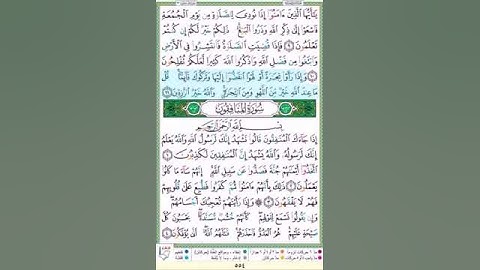 يَٰٓأَيُّهَا ٱلَّذِينَ ءَامَنُوٓا۟ إِذَا نُودِىَ لِلصَّلَوٰةِ مِن يَوْمِ ٱلْجُمُعَةِ
فَٱسْعَوْا۟ إِلَىٰ ذِكْرِ ٱللَّهِ وَذَرُوا۟ ٱلْبَيْعَ ذَٰلِكُمْ خَيْرٌ لَّكُمْ إِن كُنتُمْ
تَعْلَمُونَ ٩ فَإِذَا قُضِيَتِ ٱلصَّلَوٰةُ فَٱنتَشِرُوا۟ فِى ٱلْأَرْضِ
وَٱبْتَغُوا۟ مِن فَضْلِ ٱللَّهِ وَٱذْكُرُوا۟ ٱللَّهَ كَثِيرًا لَّعَلَّكُمْ تُفْلِحُونَ
١٠ وَإِذَا رَأَوْا۟ تِجَٰرَةً أَوْ لَهْوًا ٱنفَضُّوٓا۟ إِلَيْهَا وَتَرَكُوكَ قَآئِمًا قُلْ
مَا عِندَ ٱللَّهِ خَيْرٌ مِّنَ ٱللَّهْوِ وَمِنَ ٱلتِّجَٰرَةِ وَٱللَّهُ خَيْرُ ٱلرَّٰزِقِينَ ١١
سُورَةُ المُنَافِقُونَ
بِسْمِ ٱللَّهِ ٱلرَّحْمَٰنِ ٱلرَّحِيمِ
إِذَا جَآءَكَ ٱلْمُنَٰفِقُونَ قَالُوا۟ نَشْهَدُ إِنَّكَ لَرَسُولُ ٱللَّهِ وَٱللَّهُ يَعْلَمُ
إِنَّكَ لَرَسُولُهُۥ وَٱللَّهُ يَشْهَدُ إِنَّ ٱلْمُنَٰفِقِينَ لَكَٰذِبُونَ ١
ٱتَّخَذُوٓا۟ أَيْمَٰنَهُمْ جُنَّةً فَصَدُّوا۟ عَن سَبِيلِ ٱللَّهِ إِنَّهُمْ سَآءَ مَا كَانُوا۟
يَعْمَلُونَ ٢ ذَٰلِكَ بِأَنَّهُمْ ءَامَنُوا۟ ثُمَّ كَفَرُوا۟ فَطُبِعَ عَلَىٰ قُلُوبِهِمْ
فَهُمْ لَا يَفْقَهُونَ ٣ وَإِذَا رَأَيْتَهُمْ تُعْجِبُكَ أَجْسَامُهُمْ
وَإِن يَقُولُوا۟ تَسْمَعْ لِقَوْلِهِمْ كَأَنَّهُمْ خُشُبٌ مُّسَنَّدَةٌ يَحْسَبُونَ كُلَّ
صَيْحَةٍ عَلَيْهِمْ هُمُ ٱلْعَدُوُّ فَٱحْذَرْهُمْ قَٰتَلَهُمُ ٱللَّهُ أَنَّىٰ يُؤْفَكُونَ ٤
٥٥٤